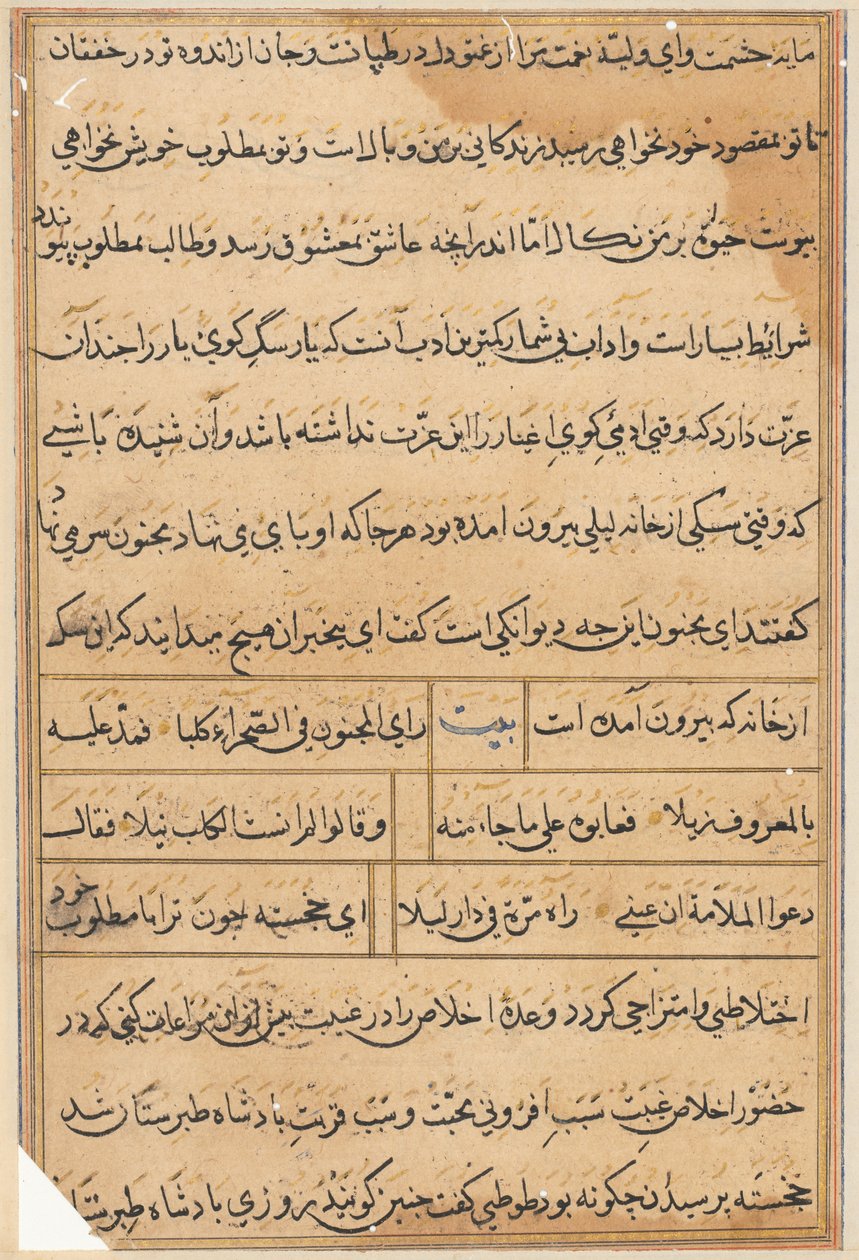 مایه حشمت وای ولیهٔ نعمت مرا از غم تو دل در طپانست و جان از اندوه تو در خفقان
تا تو بمقصود خود نخواهی رسید زندکانی بر من وبال است و تو بمطلوب خویش نخواهی
پیوست حیوة بر من نکال اما اندر آنچه عاشق بمعشوق رسد و طالب بمطلوب پیوندد
شرائط بسیار است و اداب بی شمار کمترین ادب آنست که یار سگ کوی یار را چندان
عزّت دارد که وقتی ادمئ کوی اغیار را این عزّت نداشته باشد وآن شنیدهٔ باشی
که وقتی سکی از خانه لیلی بیرون امده بود هر جا که او پای می نهاد مجنون سر می نهاد
کفتند ای مجنون این چه دیوانکی است کفت ای بیخبران هیچ میدانید که این سک
از خانه که بیرون آمده است بیت رای المجنون فی الصّحراء کلبا فمدّ علیه
بالمعروف ذیلا فعابوه علی ما جاء منه و قالوا لم انست الکلب نیلا فقال
دعوا الملامة ان عینی راه مرّة فی دار لیلا ای خجسته چون ترا با مطلوب خود
اختلاطی وامتزاجی کردد وعدهٔ اخلاص را در غیبت بیش از این مراعات کنی که در
حضور اخلاص غیبت سبب افزونی محبّت و سبب قربت پادشاه طبرستان شد
خجسته پرسید آن چکونه بود طوطی کفت چنین کویند روزی پادشاه طبرستان